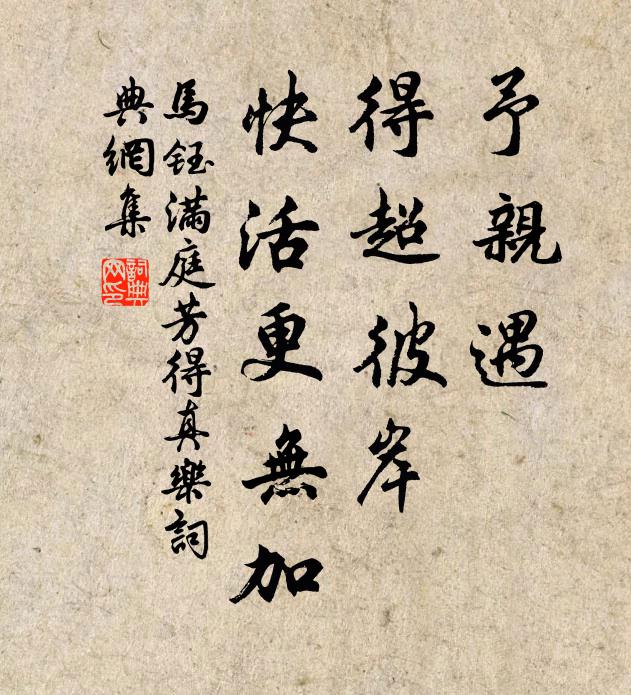 予親遇
得超彼岸
快活更無加
馬鈺滿庭芳得真樂詞
典網集
詞典
网印